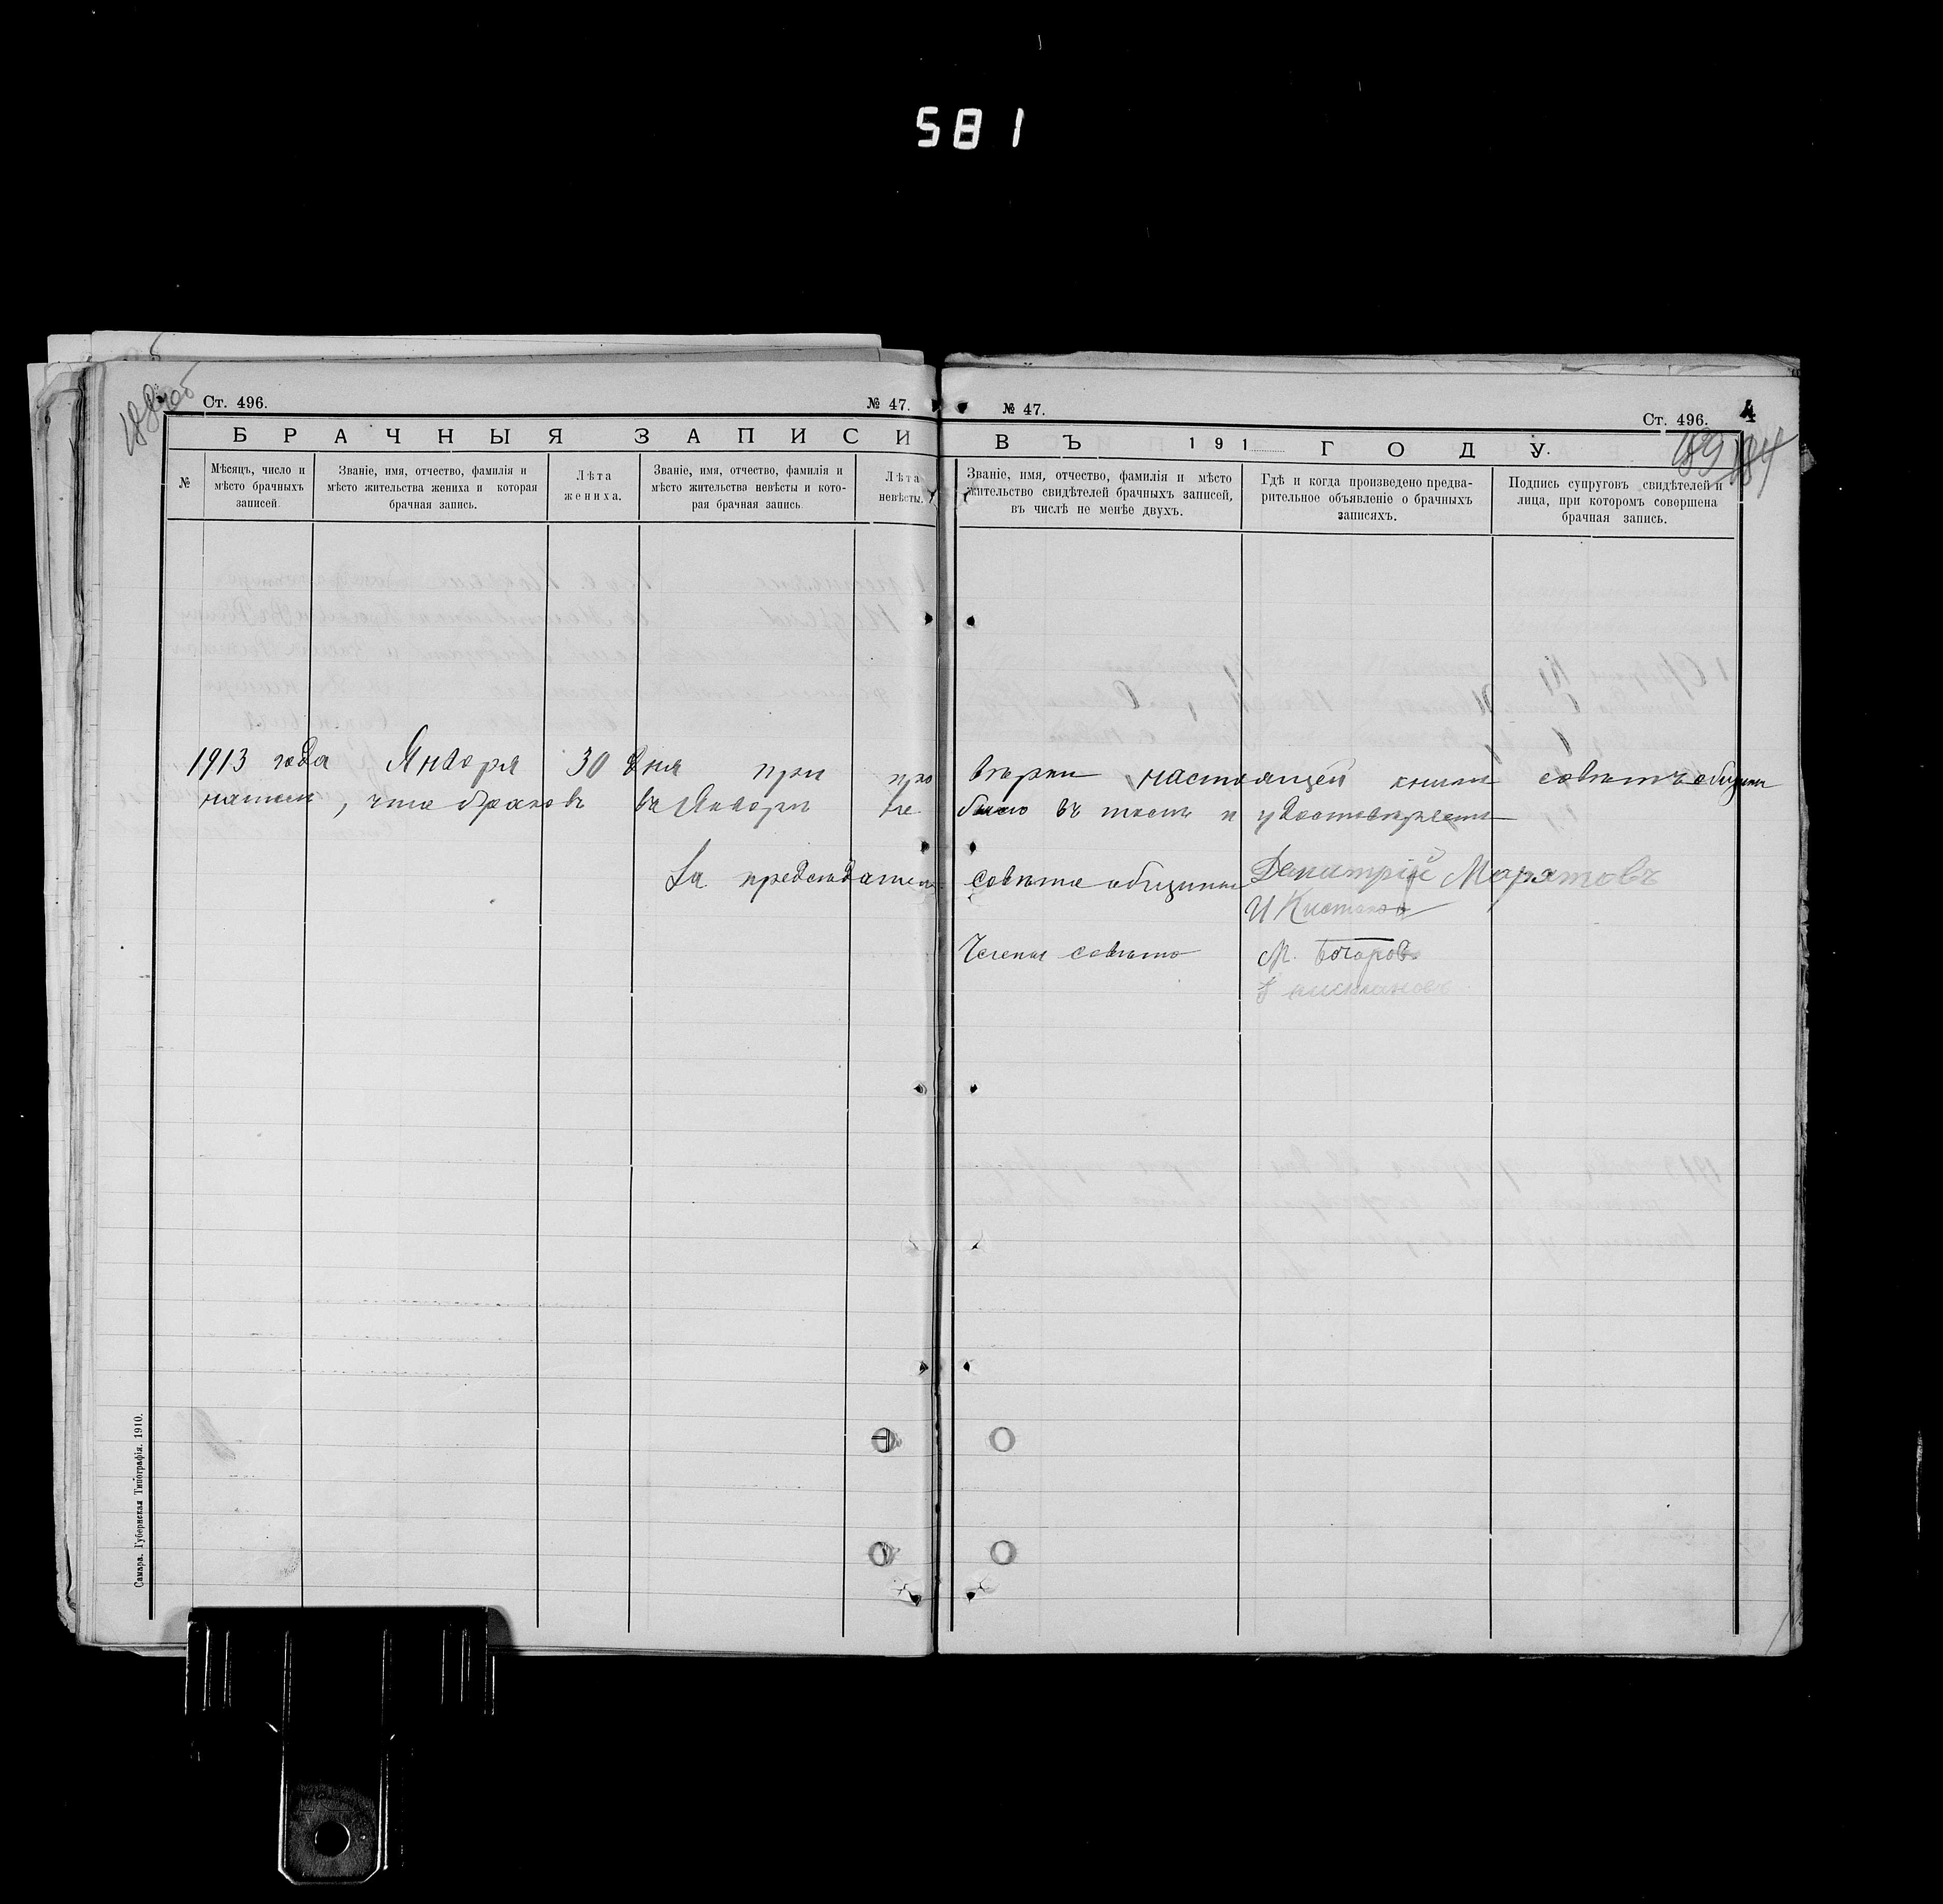 581
Ст. 496.
№ 47.
БРАЧНЫЯ ЗАПИСИ
№
Мѣсяцъ, число и мѣсто брачныхъ записей.
Званіе, имя, отчество, фамилія и мѣсто жительства жениха и которая брачная запись.
Лѣта жениха.
Званіе, имя, отчество, фамилія и мѣсто жительства невѣсты и кото-рая брачная запись
Лѣта невѣсты.
№ 47.
Ст. 496.
4
ВЪ 191 ГОДУ.
Званіе, имя, отчество, фамилія и мѣсто жительство свидѣтелей брачныхъ записей, въ числѣ не менѣе двухъ.
Гдѣ и когда произведено предва-рительное объявленіе о брачныхъ записяхъ.
Подпись супруговъ свидѣтелей и лица, при которомъ совершена брачная запись.
1913 года Января 30 дня при про вѣрки настоящей книги совѣтъ общины
нашли, что браковъ въ Январѣ не было въ томъ и удостовѣряетъ
За председателя совѣта общины Димитрій Марятовъ
И
Члены совѣта М. Бочаров
Самара. Губернская Типографія. 1910.